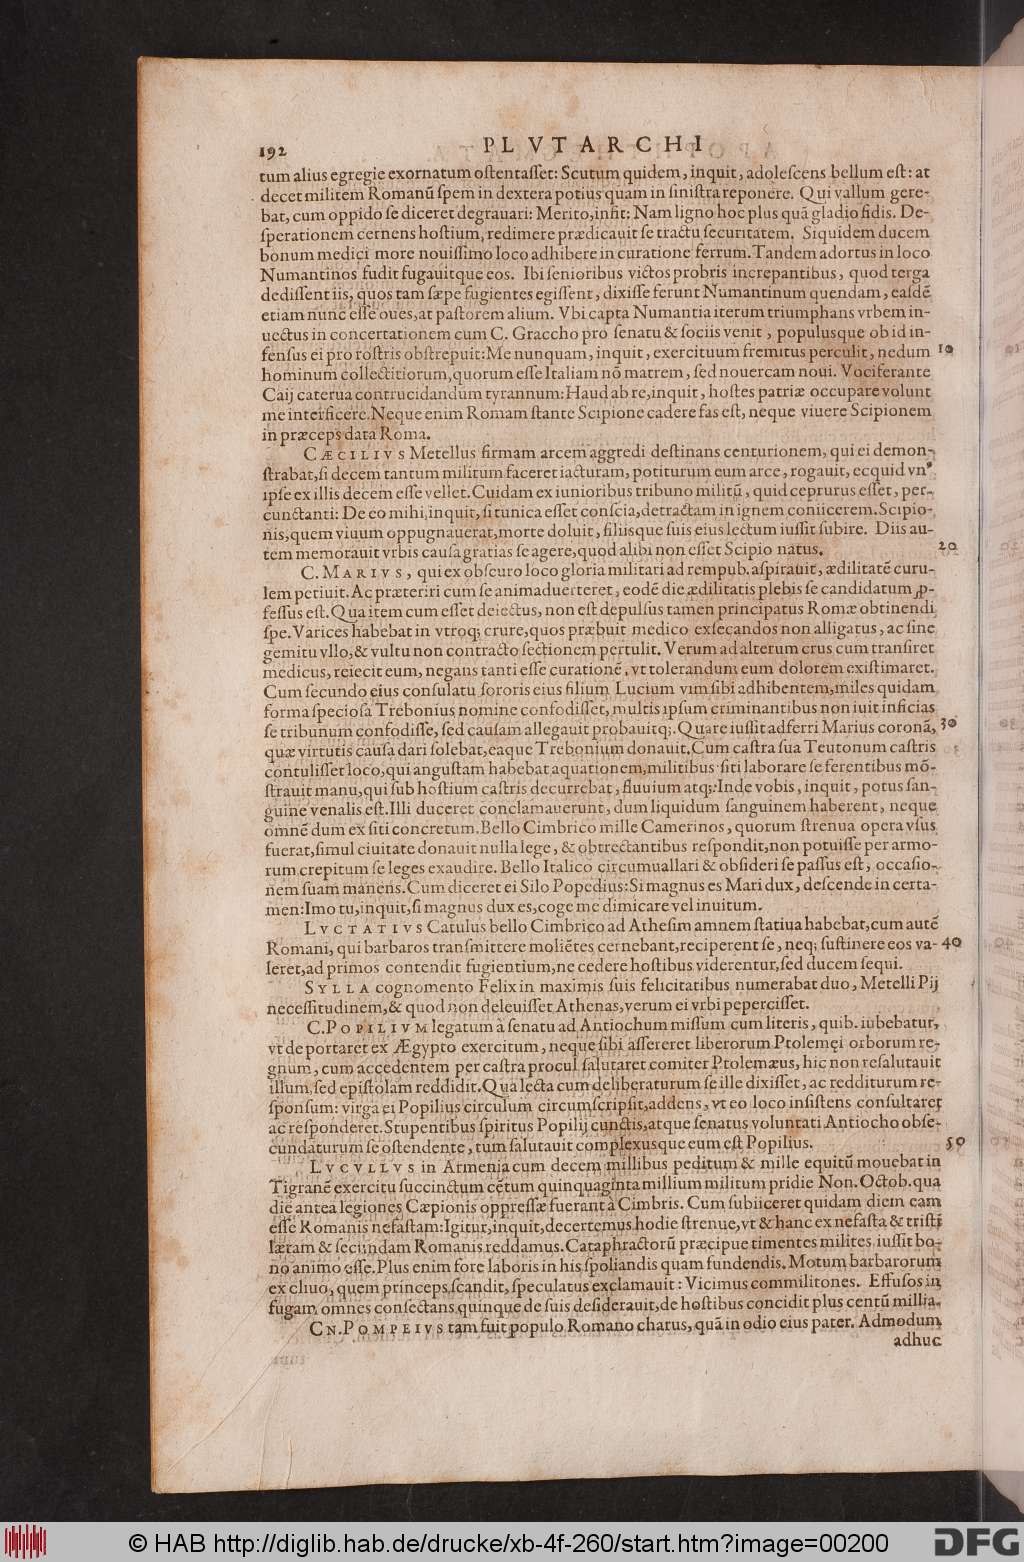 192 PLVTARCHI
tum alius egregie exornatum oſtentaſſet: Scutum quidem, inquit, adoleſcens bellum eſt: at
decet militem Romanũ ſpem in dextera potius quam in ſiniſtra reponere. Qui vallum gere-
bat, cum oppido ſe diceret degrauari: Merito, infit: Nam ligno hoc plus quã gladio fidis. De-
ſperationem cernens hoſtium, redimere prædicauit ſe tractu ſecuritatem. Siquidem ducem
bonum medici more nouiſſimo loco adhibere in curatione ferrum. Tandem adortus in loco
Numantinos fudit fugauitque eos. Ibi ſenioribus victos probris increpantibus, quod terga
dediſſent iis, quos tam ſæpe fugientes egiſſent, dixiſſe ferunt Numantinum quendam, eaſdẽ
etiam nunc eſſe oues, at paſtorem alium. Vbi capta Numantia iterum triumphans vrbem in-
uectus in concertationem cum C. Graccho pro ſenatu & ſociis venit, populusque ob id in-
fenſus ei pro roſtris obſtrepuit: Me nunquam, inquit, exercituum fremitus perculit, nedum 10
hominum collectitiorum, quorum eſſe Italiam nõ matrem, ſed nouercam noui. Vociferante
Caij caterua contrucidandum tyrannum: Haud ab re, inquit, hoſtes patriæ occupare volunt
me interficere. Neque enim Romam ſtante Scipione cadere fas eſt, neque viuere Scipionem
in præceps data Roma.
CÆCILIVS Metellus firmam arcem aggredi deſtinans centurionem, qui ei demon-
ſtrabat, ſi decem tantum militum faceret iacturam, potiturum eum arce, rogauit, ecquid vn⁹
ipſe ex illis decem eſſe vellet. Cuidam ex iunioribus tribuno militũ, quid cepturus eſſet, per-
cunctanti: De eo mihi, inquit, ſi tunica eſſet conſcia, detractam in ignem coniicerem. Scipio-
nis, quem viuum oppugnauerat, morte doluit, filiisque ſuis eius lectum iuſſit ſubire. Diis au-
tem memorauit vrbis cauſa gratias ſe agere, quod alibi non eſſet Scipio natus. 20
C. MARIVS, qui ex obſcuro loco gloria militari ad rempub. aſpirauit, ædilitatẽ curu-
lem petiuit. Ac præteriri cum ſe animaduerteret, eodẽ die ædilitatis plebis ſe candidatum ꝓ-
feſſus eſt. Qua item cum eſſet deiectus, non eſt depulſus tamen principatus Romæ obtinendi
ſpe. Varices habebat in vtroq; crure, quos præbuit medico exſecandos non alligatus, ac ſine
gemitu vllo, & vultu non contracto ſectionem pertulit. Verum ad alterum crus cum tranſiret
medicus, reiecit eum, negans tanti eſſe curationẽ, vt tolerandum eum dolorem exiſtimaret.
Cum ſecundo eius conſulatu ſororis eius filium Lucium vim ſibi adhibentem, miles quidam
forma ſpecioſa Trebonius nomine confodiſſet, multis ipſum criminantibus non iuit inficias
ſe tribunum confodiſſe, ſed cauſam allegauit probauitq;. Quare iuſſit adferri Marius coronã, 30
quæ virtutis cauſa dari ſolebat, eaque Trebonium donauit. Cum caſtra ſua Teutonum caſtris
contuliſſet loco, qui anguſtam habebat aquationem, militibus ſiti laborare ſe ferentibus mõ-
ſtrauit manu, qui ſub hoſtium caſtris decurrebat, fluuium atq;: Inde vobis, inquit, potus ſan-
guine venalis eſt. Illi duceret conclamauerunt, dum liquidum ſanguinem haberent, neque
omnẽ dum ex ſiti concretum. Bello Cimbrico mille Camerinos, quorum ſtrenua opera vſus
fuerat, ſimul ciuitate donauit nulla lege, & obtrectantibus reſpondit, non potuiſſe per armo-
rum crepitum ſe leges exaudire. Bello Italico circumuallari & obſideri ſe paſſus eſt, occaſio-
nem ſuam manens. Cum diceret ei Silo Popedius: Si magnus es Mari dux, deſcende in certa-
men: Imo tu, inquit, ſi magnus dux es, coge me dimicare vel inuitum.
LVCTATIVS Catulus bello Cimbrico ad Atheſim amnem ſtatiua habebat, cum autẽ
Romani, qui barbaros tranſmittere moliẽtes cernebant, reciperent ſe, neq; ſuſtinere eos va- 40
leret, ad primos contendit fugientium, ne cedere hoſtibus viderentur, ſed ducem ſequi.
SYLLA cognomento Felix in maximis ſuis felicitatibus numerabat duo, Metelli Pij
neceſſitudinem, & quod non deleuiſſet Athenas, verum ei vrbi peperciſſet.
C. POPILIVM legatum à ſenatu ad Antiochum miſſum cum literis, quib. iubebatur,
vt deportaret ex Ægypto exercitum, neque ſibi aſſereret liberorum Ptolemęi orborum re-
gnum, cum accedentem per caſtra procul ſalutaret comiter Ptolemæus, hic non reſalutauit
illum, ſed epiſtolam reddidit. Qua lecta cum deliberaturum ſe ille dixiſſet, ac redditurum re-
ſponſum: virga ei Popilius circulum circumſcripſit, addens, vt eo loco inſiſtens conſultaret
ac reſponderet. Stupentibus ſpiritus Popilij cunctis, atque ſenatus voluntati Antiocho obſe-
cundaturum ſe oſtendente, tum ſalutauit complexusque eum eſt Popilius. 50
LVCVLLVS in Armenia cum decem millibus peditum & mille equitũ mouebat in
Tigranẽ exercitu ſuccinctum cẽtum quinquaginta millium militum pridie Non. Octob. qua
die antea legiones Cæpionis oppreſſæ fuerant à Cimbris. Cum ſubiiceret quidam diem eam
eſſe Romanis nefaſtam: Igitur, inquit, decertemus hodie ſtrenue, vt & hanc ex nefaſta & triſti
lætam & ſecundam Romanis reddamus. Cataphractorũ præcipue timentes milites iuſſit bo-
no animo eſſe. Plus enim fore laboris in his ſpoliandis quam fundendis. Motum barbarorum
ex cliuo, quem princeps ſcandit, ſpeculatus exclamauit: Vicimus commilitones. Effuſos in
fugam omnes conſectans quinque de ſuis deſiderauit, de hoſtibus concidit plus centũ millia.
CN. POMPEIVS tam fuit populo Romano charus, quã in odio eius pater. Admodum
adhuc
© HAB http://diglib.hab.de/drucke/xb-4f-260/start.htm?image=00200 DFG